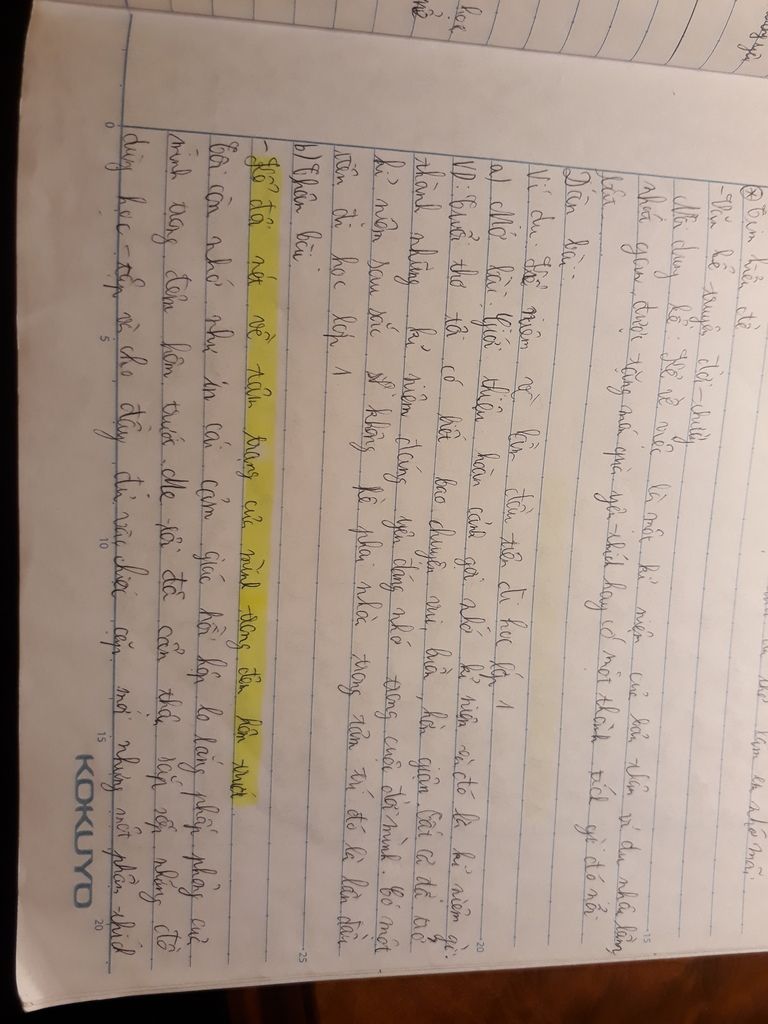 học
* Tìm hiểu đề
- Văn kể chuyện đời thường
Nội dung kể: Kể về việc là một kỉ niệm của bản thân ví dụ nhầm lẫm,
nhút gan, được tặng món quà yêu thích hay có một thành tích gì đó nổi
bật
Dàn bài:
Ví dụ: Kể niệm về lần đầu tiên đi học lớp 1
a) Mở bài: Giới thiệu hoàn cảnh gợi nhớ kỉ niệm và đó là kỉ niệm gì.
VD: Tuổi thơ tôi có biết bao chuyện vui, buồn, hờn giận tất cả đã trở
thành những kỉ niệm đáng yêu đáng nhớ trong cuộc đời mình. Có một
kỉ niệm sau sắc không hề phai nhòa trong tâm trí đó là lần đầu
tiên đi học lớp 1
b) Thân bài:
- Kể đôi nét về tâm trạng của mình trong đêm hôm trước
Tôi còn nhớ như in cái cảm giác hồi hộp lo lắng phấp phỏng của
mình trong đêm hôm trước. Mẹ tôi đã cẩn thận sắp xếp những đồ
dùng học - tập và cho đầy đủ vào chiếc cặp mới nhưng một phần thích
0 5 10 15 20
15
20
25
KOKUYO